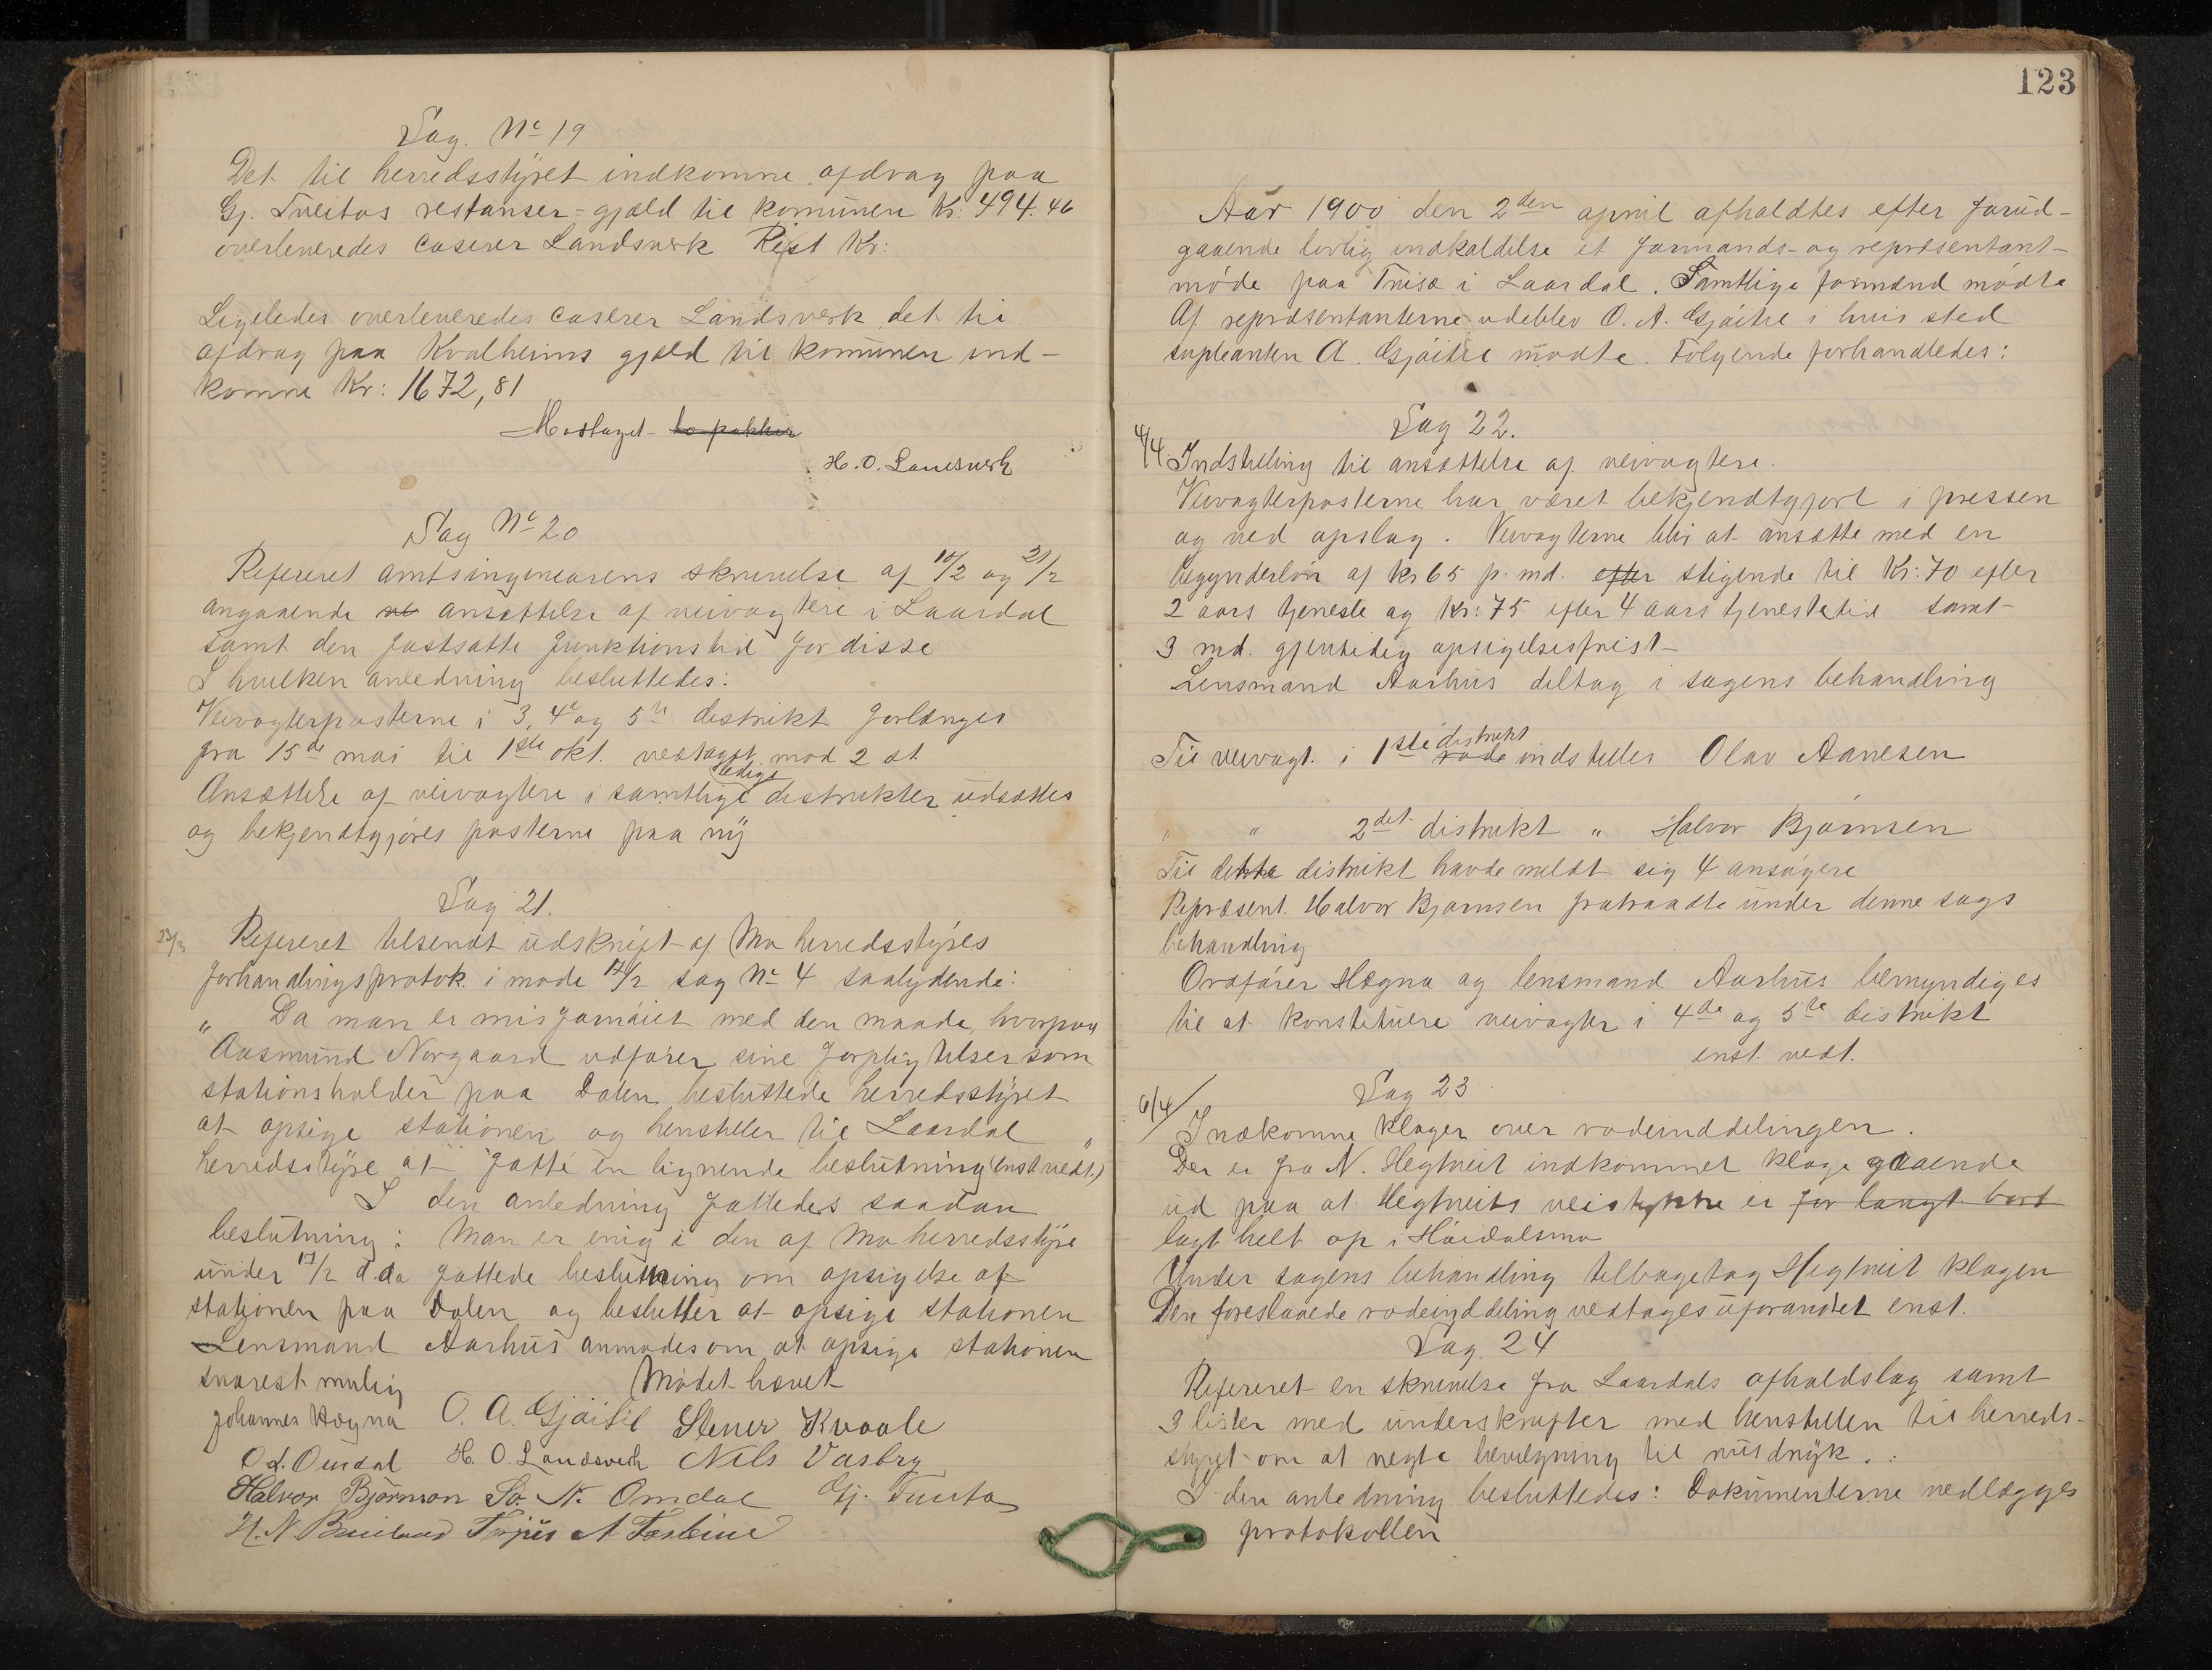 Sag. Nº 19
Det til herredsstyret indkomne afdrag paa
Gj. Tveitos restanser-gjæld til komunen Kr: 494.46
overleveredes caserer Landsverk Rest Kr:
Ligeledes overleveredes caserer Landsverk det til
afdrag paa Kvalheims gjæld til komunen ind-
komne Kr: 1672,81
Modtaget to pakker
H. O. Landsverk
Sag Nº 20
Refereret amtsingenieurens skrivelse af 10/2 og 21/2
angaaende ansættelse af veivogtere i Laardal
samt den fastsatte funktionstid for disse
I hvilken anledning besluttedes:
Veivogterposterne i 3, 4de og 5te distrikt forlænges
fra 15de mai til 1ste okt. vedtaget mod 2 st.
Ansættelse af veivogtere i samtlige ledige distrikter udsættes
og bekjendtgjøres posterne paa ny
Sag 21.
Refereret tilsendt udskrift af Mo herredsstyres
forhandlingsprotok. i møde 17/2 sag Nº 4 saalydende:
„ Da man er misfornøiet med den maade, hvorpaa
Aasmund Norgaard udfører sine forpligtelser som
stationsholder paa Dalen besluttede herredsstyret
at opsige stationen og henstiller til Laardal
herredsstyre at fatte en lignende beslutning (enst. vedt.) "
I den anledning fattedes saadan
beslutning: Man er enig i den af Mo herredsstyre
under 17/2 d.da fattede beslutning om opsigelse af
stationen paa Dalen og beslutter at opsige stationen
Lensmand Aarhus anmodes om at opsige stationen
snarest mulig Mødet hævet
Johannes Høgna O. A. Gjøitil Stener Kvaale
O. L. Omdal H. O. Landsverk Nils Vasbrg
Halvor Bjørnson So. N. Omdal Gj. Tveito
123
Aar 1900 den 2den april afholdtes efter forud-
gaaende lovlig indkaldelse et formands- og repræsentant-
møde paa Triset i Laardal. Samtlige formænd mødte
Af repræsentanterne udeblev O. A. Gjøitil i hvis sted
supleanten A. Gjøitil mødte. Følgende forhandledes:
Sag 22.
4/4 Indstilling til ansættelse af veivogtere.
Veivogterposterne har været bekjendtgjort i pressen
og ved opslag. Veivogterne blir at ansætte med en
begynderløn af kr 65 p. md. efter stigende til Kr: 70 efter
2 aars tjeneste og Kr: 75 efter 4 aars tjenestetid samt
3 md. gjensidig opsigelsesfrist
Lensmand Aarhus deltog i sagens behandling
Til veivogt. i 1ste distrikt rode indstilles Olav Aanesen
" " 2det distrikt " Halvor Bjørnsen
Til dette distrikt havde meldt sig 4 ansøgere
Repræsent. Halvor Bjørnsen fratraadte under denne sags
behandling
Ordfører Høgna og lensmand Aarhus bemyndiges
til at konstituere veivogter i 4de og 5te distrikt
enst. vedt.
Sag 23
6/4/ Indkomne klager over rodeinddelingen.
Der er fra N. Hegtveit indkommet klage gaaende
ud paa at Hegtveits veistykke er for langt bort
lagt helt op i Høidalsmo
Under sagens behandling tilbagetog Hegtveit klagen
Den foreslaaede rodeinddeling vedtages uforandret enst.
Sag 24
Refereret en skrivelse fra Laardals afholdslag samt
3 lister med underskrifter med henstillen til herreds-
styret om at negte bevilgning til rusdrik.
I den anledning besluttedes: Dokumenterne vedlægges
protokollen